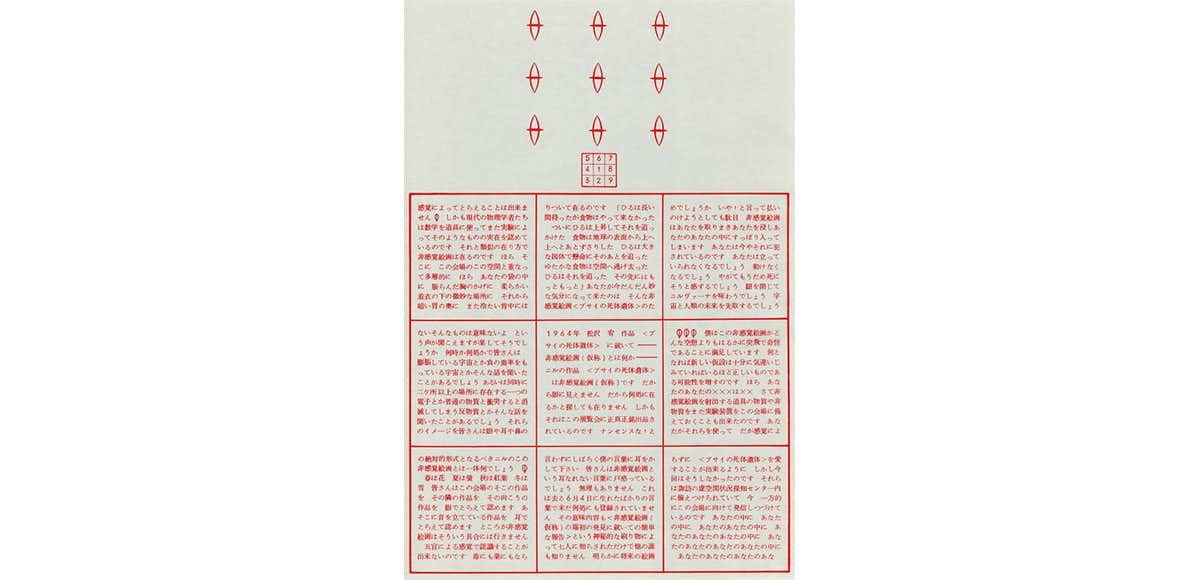 5 6 7
4 1 8
3 2 9
感覚によってとらえることは出来ま
せん しかも現代の物理学者たち
は数学を道具に使ってまた実験によ
ってそのようなものの実在を認めて
いるのです それと類似の在り方で
非感覚絵画は在るのです ほら そ
こに この会場のこの空間と重なっ
て多層的に ほら あなたの袋の中
に 脹らんだ胸のかげに 柔らかい
着衣の下の微妙な場所に それから
暗い胃の奥に また冷たい背中には
りついて在るのです 「ひるは長い
間待ったが食物はやって来なかった
ついにひるは上昇してそれを追っ
かけた 食物は地球の表面から上へ
上へとあとずさりした ひるは大き
な図体で懸命にそのあとを追った
ゆたかな食物は空間へ逃げ去った
ひるはそれを追った その先にはも
っともっと」あなたが今だんだん妙
な気分になって来たのは そんな非
感覚絵画<プサイの死体遺体>のた
めでしょうか いや!と言って払い
のけようとしても駄目 非感覚絵画
はあなたを取りまきあなたを浸しあ
なたのあなたの中にすっぽり入って
しまいます あなたは今やそれに犯
されているのです あなたは立って
いられなくなるでしょう 動けなく
なるでしょう やがてもうだめ死に
そうと感ずるでしょう 眼を閉じて
ニルヴァーナを味わうでしょう 宇
宙と人類の未来を先取するでしょう
ないそんなものは意味ないよ とい
う声が聞こえますが果してそうでし
ょうか 何時か何処かで皆さんは
膨脹している宇宙とか負の曲率をも
っている宇宙とかそんな話を聞いた
ことがあるでしょう あるいは同時に
二ヶ所以上の場所に存在する一つの
電子とか普通の物質と衝突すると消
滅してしまう反物質とかそんな話を
聞いたことがあるでしょう それら
のイメージを皆さんは眼や耳や鼻の
1964年 松沢 宥 作品 <プ
サイの死体遺体> に就いて ――
非感覚絵画(仮称)とは何か ――
ニルの作品 <プサイの死体遺体>
は非感覚絵画(仮称)です だか
ら眼に見えません だから何処に在
るかと探しても在りません しかも
それはこの展覧会に正真正銘出品さ
れているのです ナンセンスな!と
僕はこの非感覚絵画がど
んな空想よりもはるかに突飛で奇怪
であることに満足しています 何と
なれば新しい仮設は十分に気違いじ
みていればいるほど正しいものであ
る可能性を増すのです ほら あな
たのあなたの×××は×× さて非
感覚絵画を射出する道具の物質や非
物質をまた実験装置をこの会場に備
えておくことも出来たのです あな
たがそれらを使って だが感覚によ
の絶対的形式となるべきニルのこの
非感覚絵画とは一体何でしょう
春は花 夏は蛍 秋は紅葉 冬は
雪 皆さんはこの会場のそこの作品
を その隣の作品を その向こうの
作品を 眼でとらえて認めます あ
そこに音を立てている作品を 耳で
とらえて認めます ところが非感覚
絵画はそういう具合には行きません
五官による感覚で認識することが
出来ないのです 毒にも薬にもなら
言わずにしばらく僕の言葉に耳をか
して下さい 皆さんは非感覚絵画と
いう耳なれない言葉に戸惑っている
でしょう 無理もありません これ
は去る6月4日に生れたばかりの言
葉で未だ何処にも登録されていませ
ん その意味内容も<非感覚絵画(
仮称)の最初の発見に就いての簡単
な報告>という神秘的な刷り物によ
って七人に知らされただけで他の誰
も知りません 明らかに将来の絵画
らずに <プサイの死体遺体>を愛
することが出来るように しかし今
回はそうしなかったのです それら
は諏訪の虚空間状況探知センター内
に備えつけられていて 今 一方的
にこの会場に向けて発信しつづけて
いるのです あなたの中に あなた
の中に あなたのあなたの中に あ
なたのあなたの中に あなたのあな
たのあなたのあなたの中に あなた
のあなたのあなたのあなたのあなた